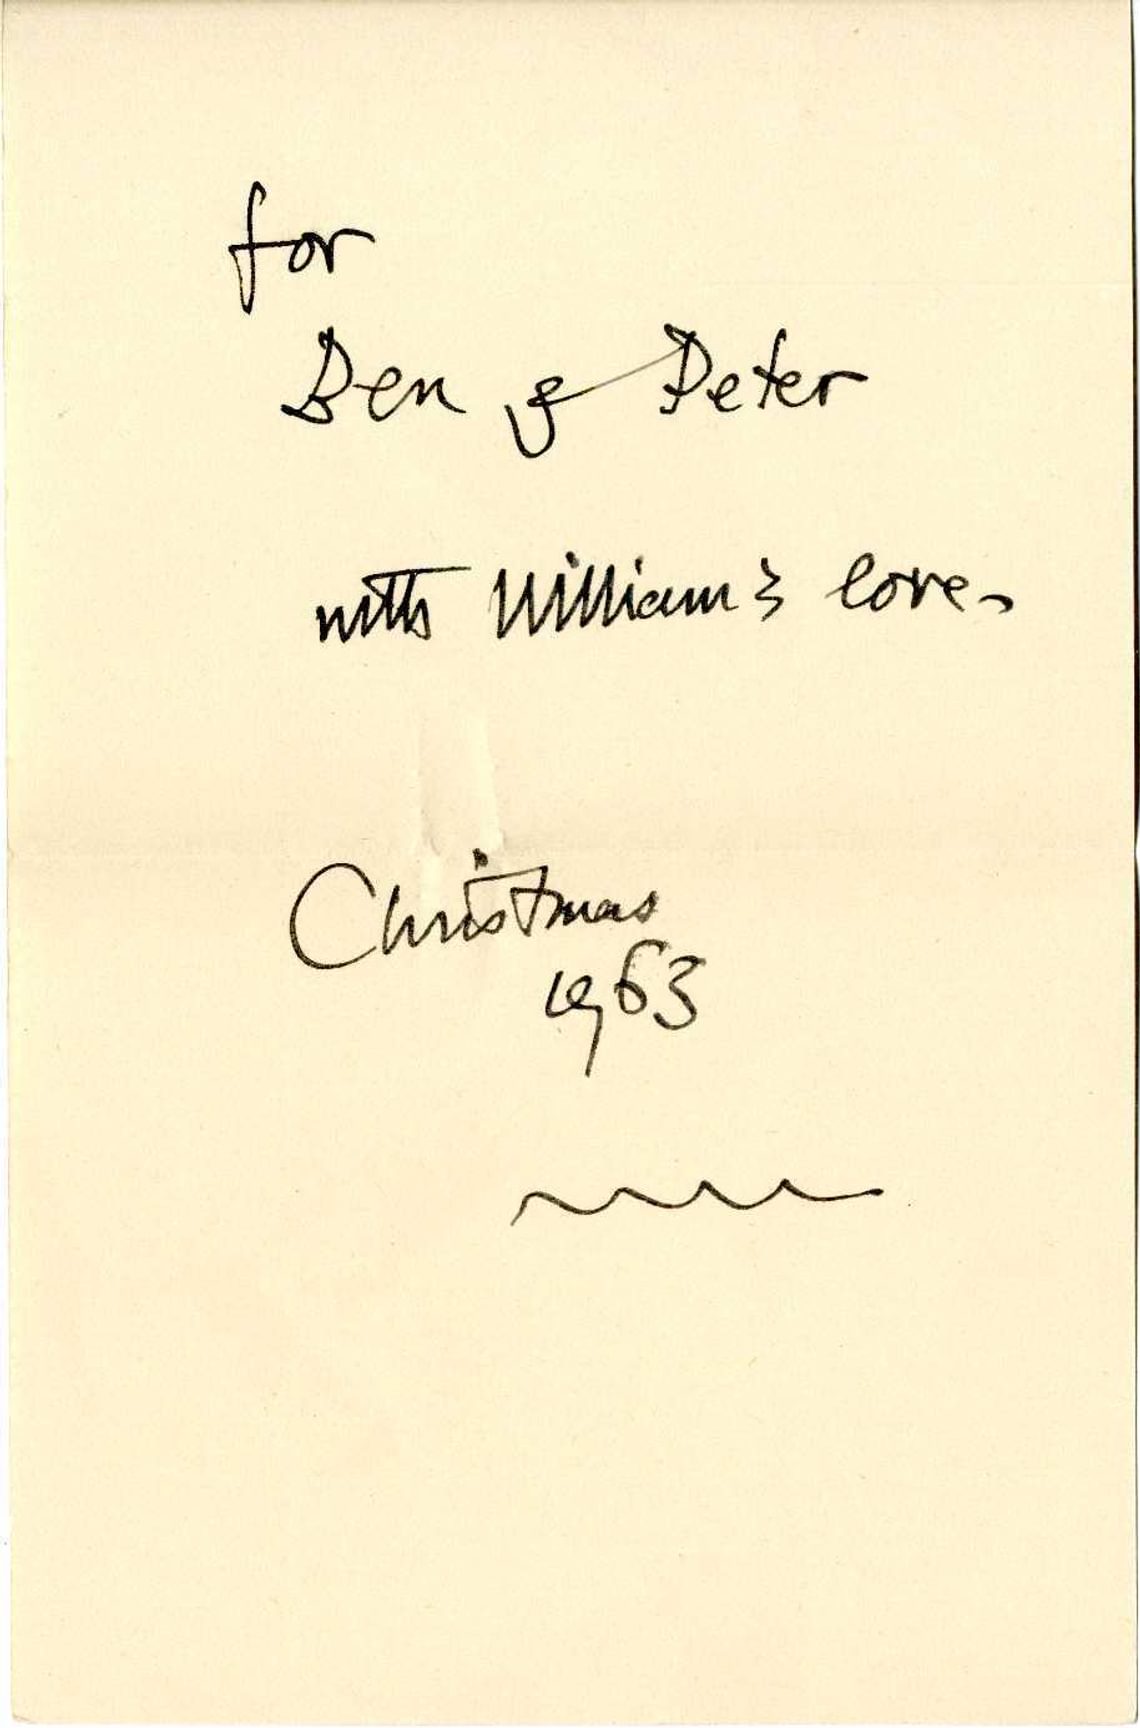 for
Ben & Peter
with William's love.
Christmas
1963